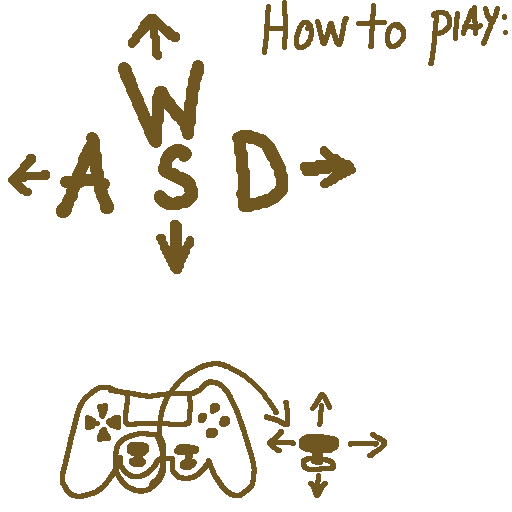 How to plAy:
W
A S D